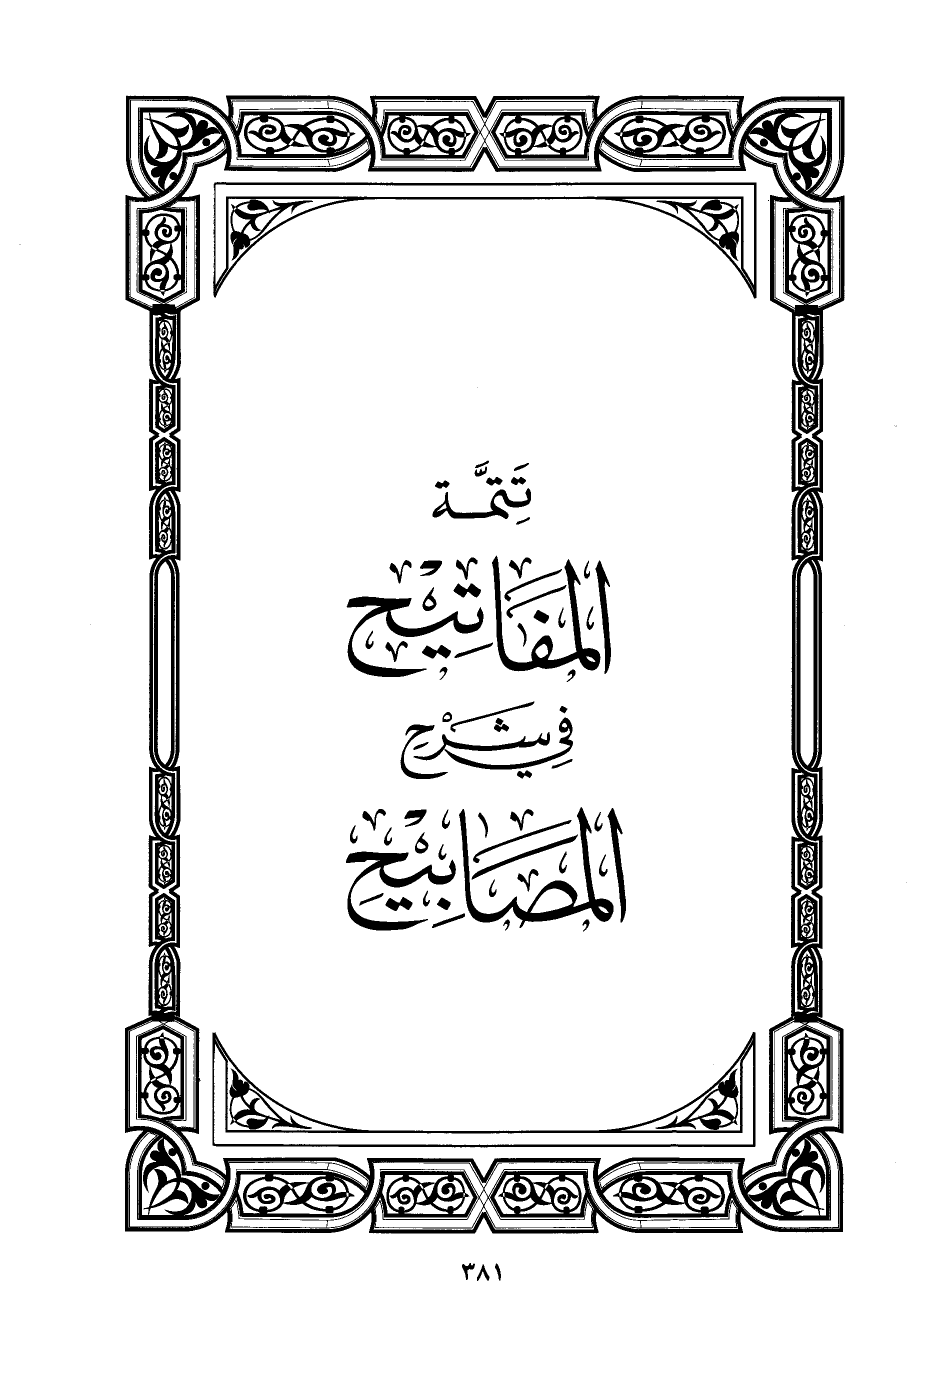 تَتِمَّة
المَفَاتِيْح
فِي شَرْحِ
المَصَابِيْحِ
٣٨١